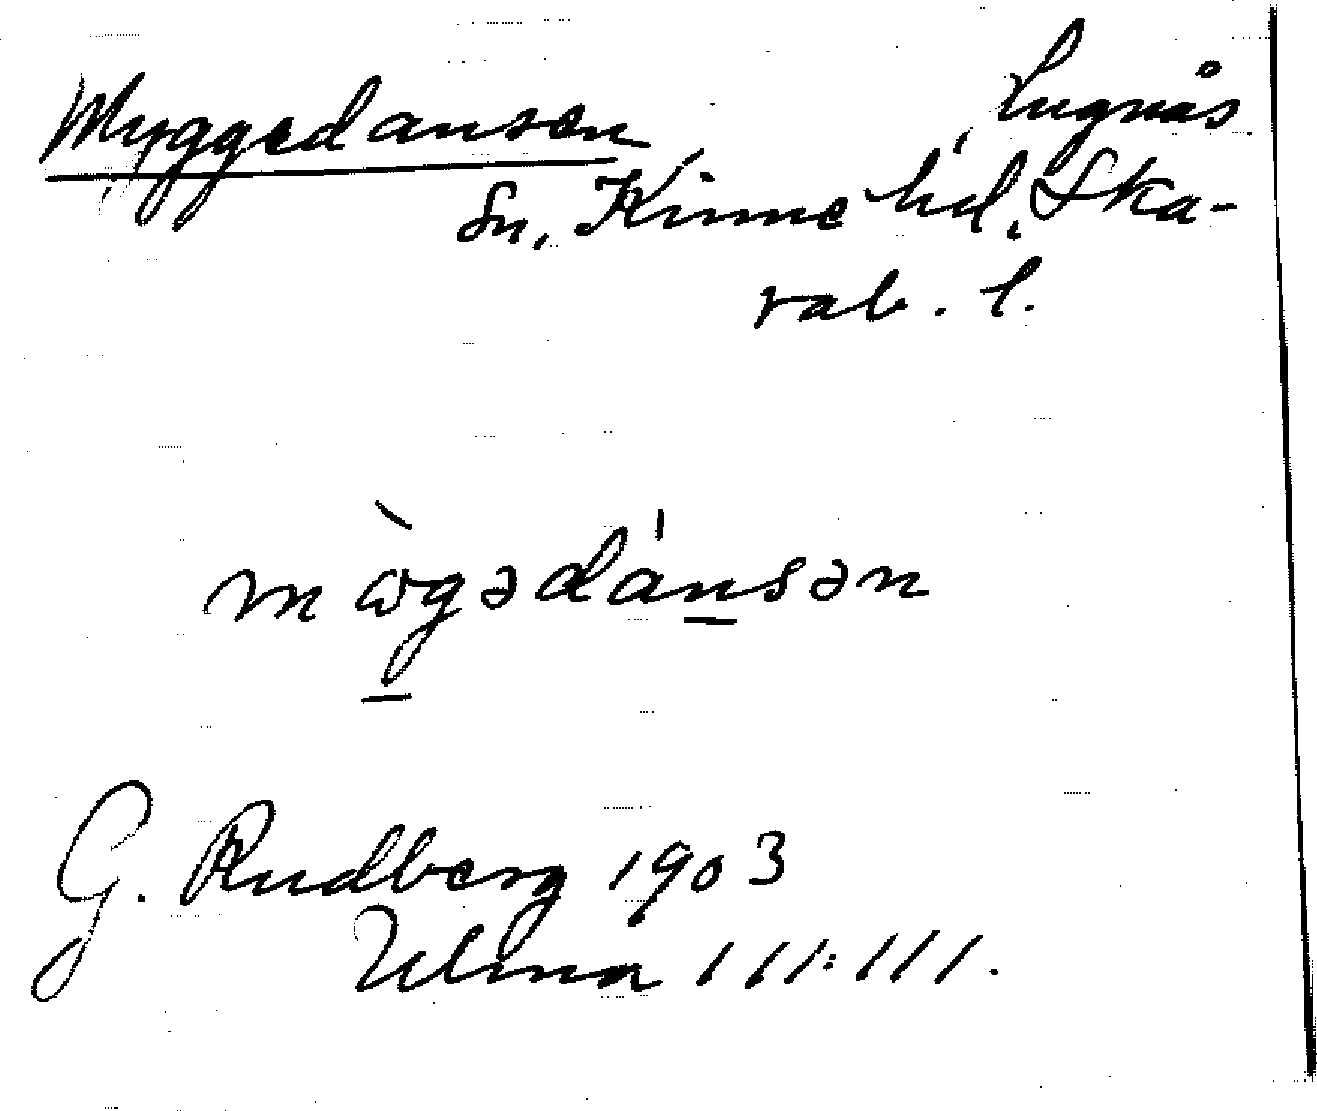 Myggedansen, Lugnås
sn, Kinne hd, Ska-
rab. l.
mògədánsən
G. Rudberg 1903
Ulma 111:111.